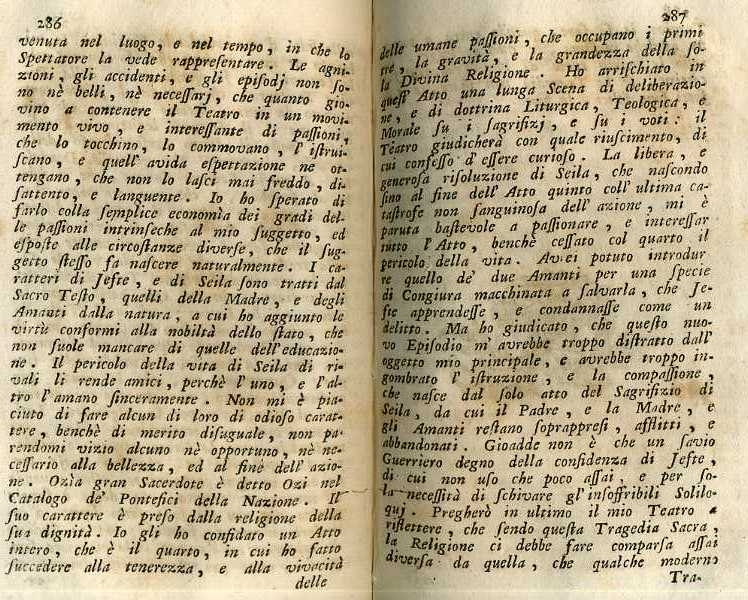 286
venuta nel luogo, e nel tempo, in che lo
Spettatore la vede rappresentare. Le agni-
zioni, gli accidenti, e gli episodj non so-
no nè belli, nè necessarj, che quanto gio-
vino a contenere il Teatro in un movi-
mento vivo, e interessante di passioni,
che lo tocchino, lo commovano, l'istrui-
scano, e quell'avida espettazione ne ot-
tengano, che non lo lasci mai freddo, di-
sattento, e languente. Io ho sperato di
farlo colla semplice economìa dei gradi del-
le passioni intrinseche al mio suggetto, ed
esposte alle circostanze diverse, che il sug-
getto stesso fa nascere naturalmente. I ca-
ratteri di Jefte, e di Seila sono tratti dal
Sacro Testo, quelli della Madre, e degli
Amanti dalla natura, a cui ho aggiunto le
virtù conformi alla nobiltà dello stato, che
non suole mancare di quelle dell'educazio-
ne. Il pericolo della vita di Seila di ri-
vali li rende amici, perchè l'uno, e l'al-
tro l'amano sinceramente. Non mi è pia-
ciuto di fare alcun di loro di odioso carat-
tere, benchè di merito disuguale, non pa-
rendomi vizio alcuno nè opportuno, nè ne-
cessario alla bellezza, ed al fine dell'azio-
ne. Ozìa gran Sacerdote è detto Ozi nel
Catalogo de' Pontefici della Nazione. Il
suo carattere è preso dalla religione della
sua dignità. Io gli ho confidato un Atto
intero, che è il quarto, in cui ho fatto
succedere alla tenerezza, e alla vivacità
delle
287
delle umane passioni, che occupano i primi
tre, la gravità, e la grandezza della so-
la Divina Religione. Ho arrischiato in
quest'Atto una lunga Scena di deliberazio-
ne, e di dottrina Liturgica, Teologica, e
Morale su i sagrifizj, e su i voti: il
Teatro giudicherà con quale riuscimento, di
cui confesso d'essere curioso. La libera, e
generosa risoluzione di Seila, che nascondo
sino al fine dell'Atto quinto coll'ultima ca-
tastrofe non sanguinosa dell'azione, mi è
paruta bastevole a passionare, e interessar
tutto l'Atto, benchè cessato col quarto il
pericolo della vita. Avei potuto introdur
re quello de' due Amanti per una specie
di Congiura macchinata a salvarla, che Je-
fte apprendesse, e condannasse come un
delitto. Ma ho giudicato, che questo nuo-
vo Episodio m'avrebbe troppo distratto dall'
oggetto mio principale, e avrebbe troppo in-
gombrato l'istruzione, e la compassione,
che nasce dal solo atto del Sagrifizio di
Seila, da cui il Padre, e la Madre, e
gli Amanti restano soprappresi, afflitti, e
abbandonati. Gioadde non è che un savio
Guerriero degno della confidenza di Jefte,
di cui non uso che poco assai, e per so-
la necessità di schivare gl'insoffribili Solilo-
quj. Pregherò in ultimo il mio Teatro a
riflettere, che sendo questa Tragedia Sacra,
la Religione ci debbe fare comparsa assai
diversa da quella, che qualche moderno
Tra-